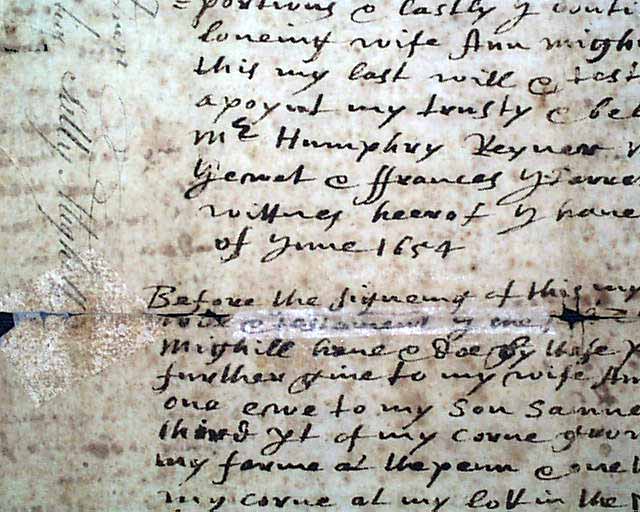 portions & lastly y
loveing wife Ann migh
this my last will & test
apoynt my trusty & be
Mr Humphry Reyner
Jewet & ffrances
wittnes heerof y have
of June 1654
Before the signeing of this my
will & testament y
Mighill have & doe by these
further give to my wife An
one ewe to my Son Samue
third pt of my corne grow
my farme at the penn & one
my corne at my lott in the